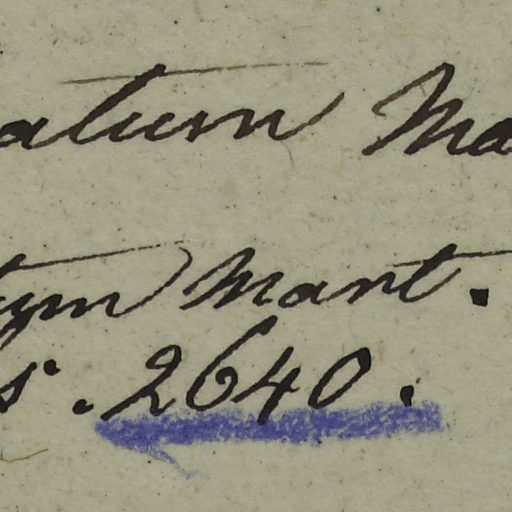 atum Ma
tym Mart.
s. . 2640.